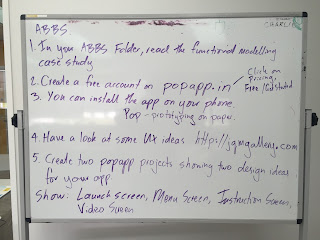 ABBS
1. In your ABBS Folder, read the functional modelling
case study.
2. Create a free account on popapp.in
Click on
Pricing,
Free / Get started
3. You can install the app on your phone.
Pop - prototyping on paper.
4. Have a look at some UX ideas
5. Create two popapp projects showing two design ideas
for your app
Show: Launch screen, Menu Screen, Instruction Screen,
Video Screen